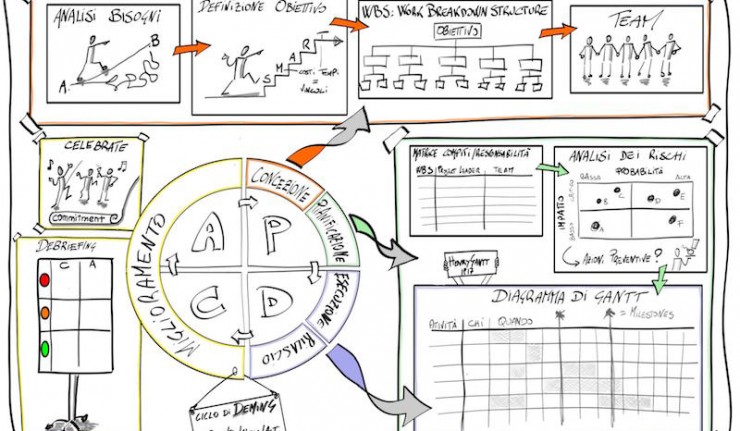 ANALISI BISOGNI
A
B
DEFINIZIONE OBIETTIVO
S
M
A
R
T
COSTI TEMPI
= VINCOLI
WBS: WORK BREAKDOWN STRUCTURE
OBIETTIVO
TEAM
CELEBRATE
Commitment
DEBRIEFING
C A
CONCEZIONE
PIANIFICAZIONE
ESECUZIONE
RILASCIO
MIGLIORAMENTO
A P
C D
CICLO DI DEMING
MATRICE COMPITI/RESPONSABILITÀ
WBS PROJECT LEADER TEAM
ANALISI DEI RISCHI
PROBABILITÀ
BASSA ALTA
IMPATTO
BASSO
B C D E
A F
AZIONI PREVENTIVE?
HENRY GANTT
1917
DIAGRAMMA DI GANTT
= MILESTONES
ATTIVITÀ CHI QUANDO